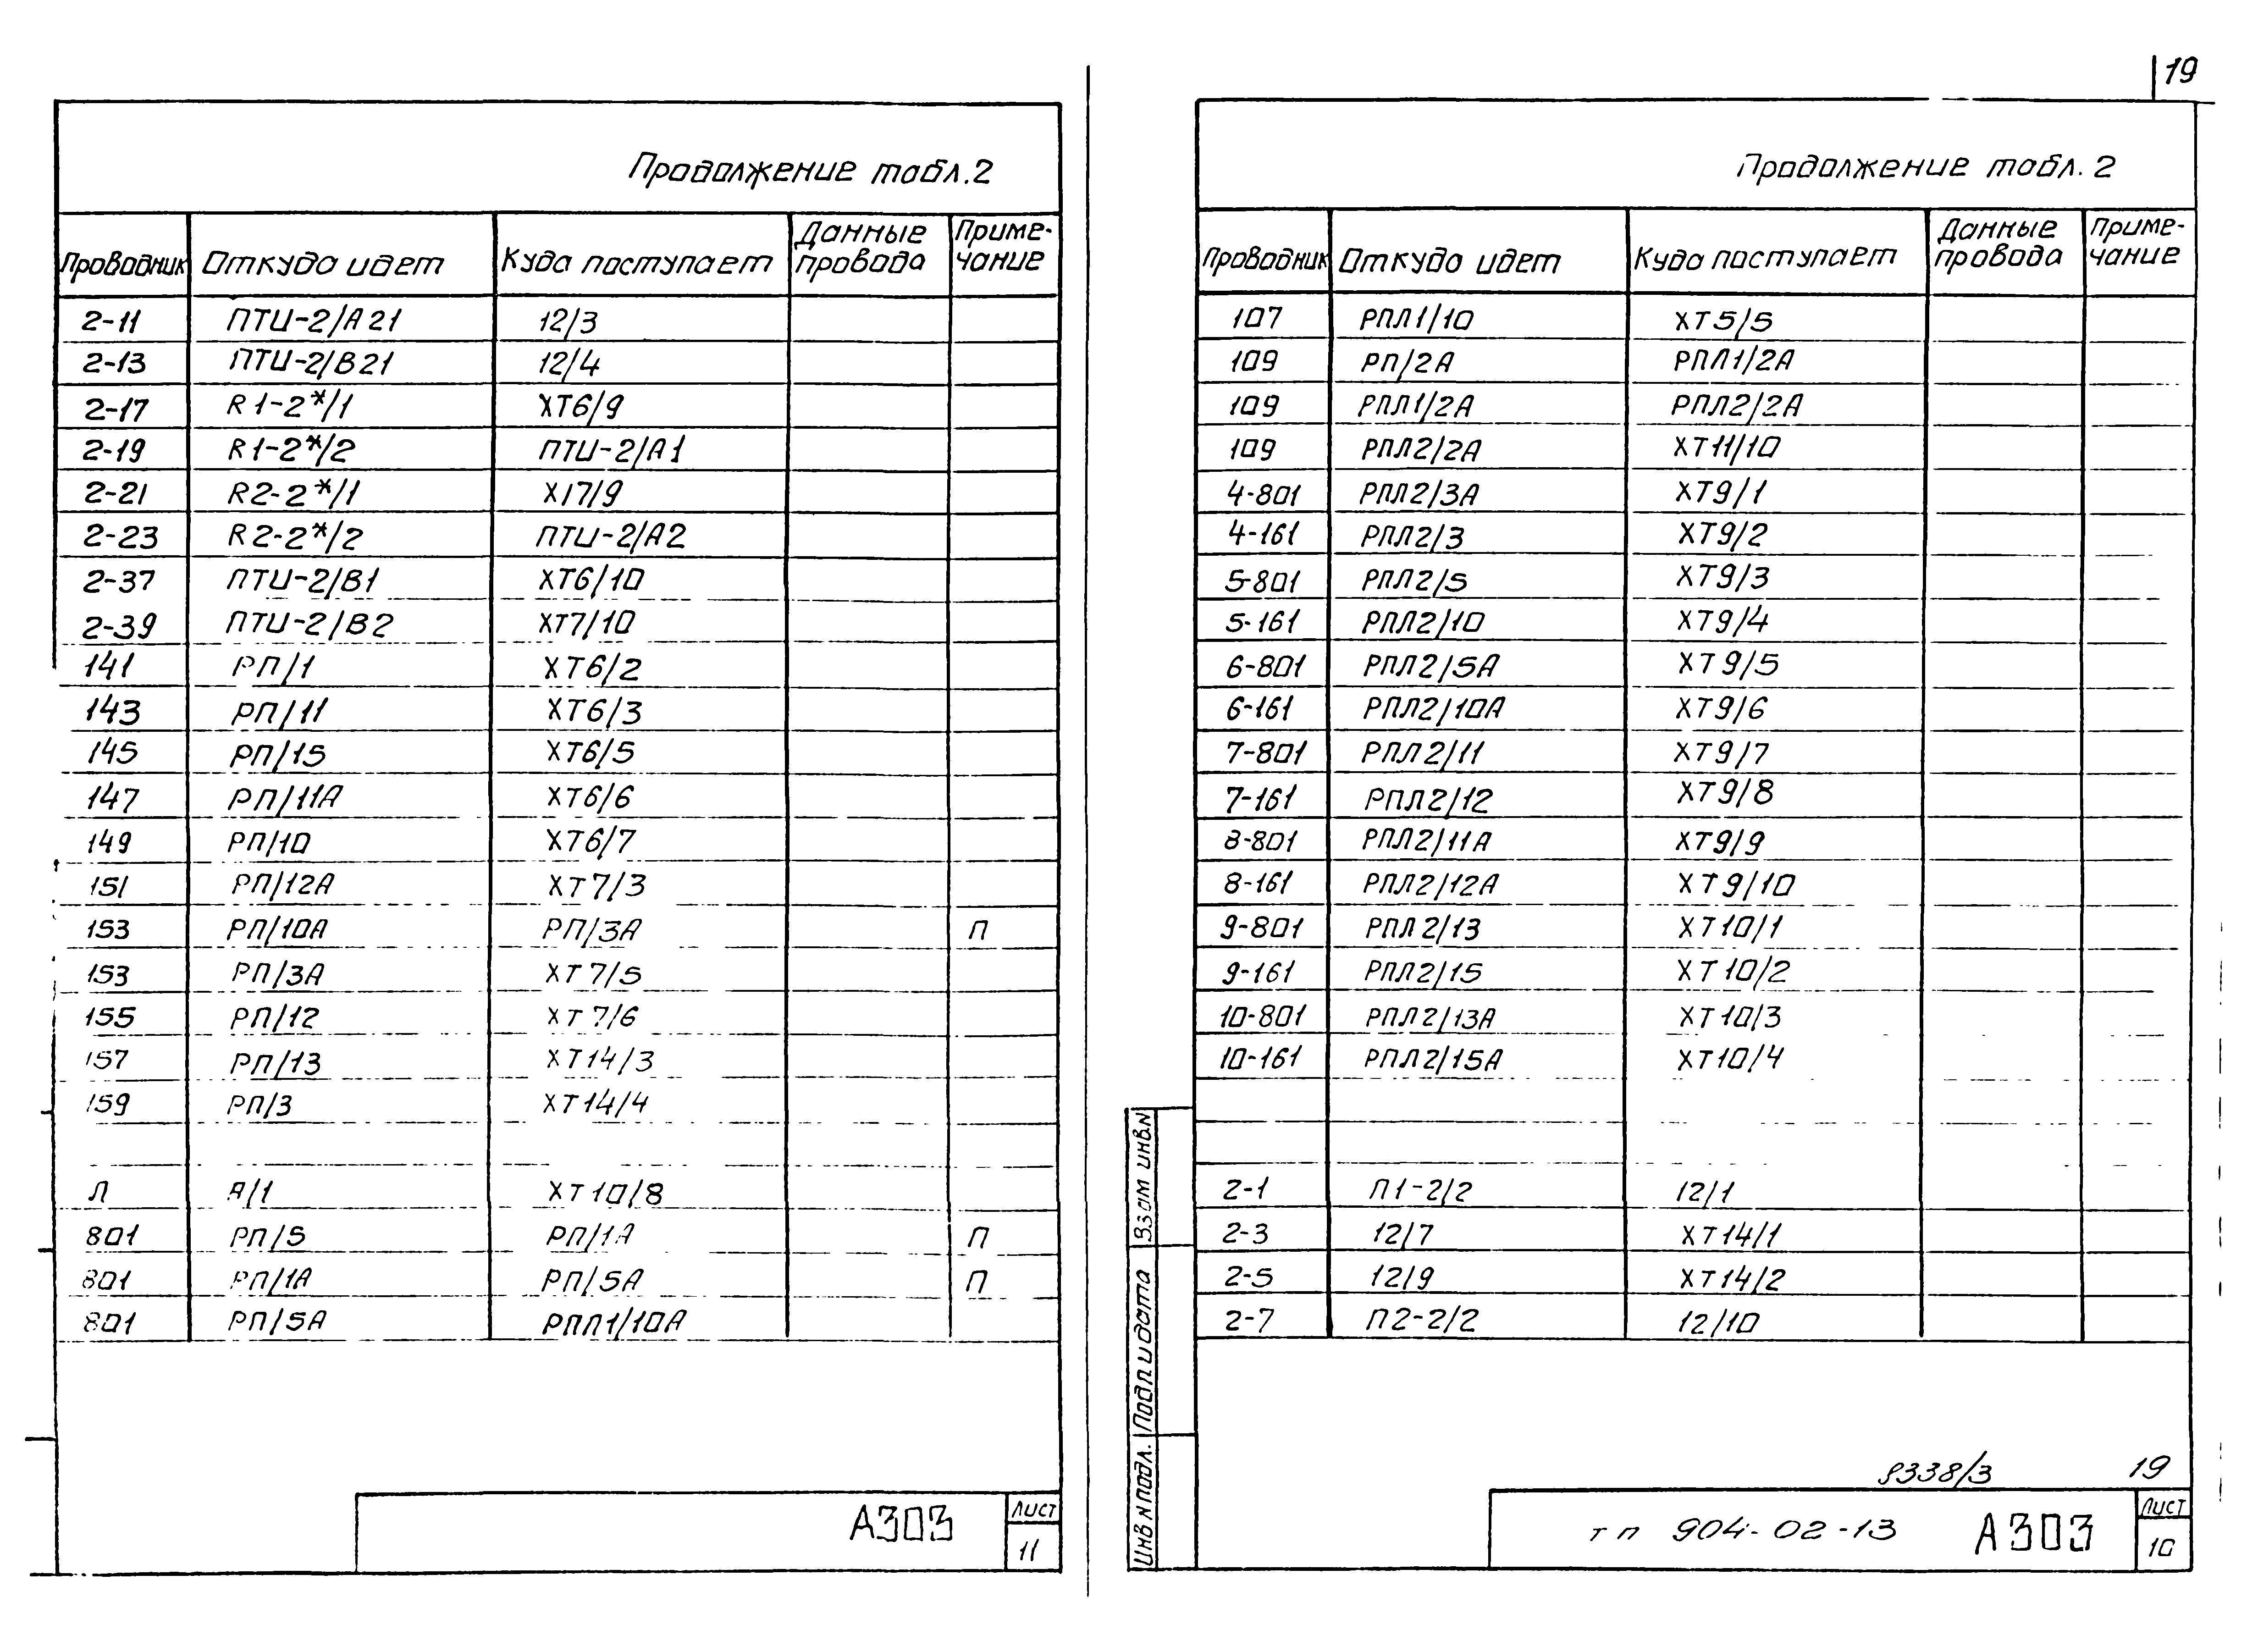 19
Продолжение табл.2
Проводник Откуда идет Куда поступает Данные провода Приме-чание
2-11 ПТИ-2/А21 12/3
2-13 ПТИ-2/В21 12/4
2-17 R1-2*/1 ХТ6/9
2-19 R1-2*/2 ПТИ-2/А1
2-21 R2-2*/1 Х17/9
2-23 R2-2*/2 ПТИ-2/А2
2-37 ПТИ-2/В1 ХТ6/10
2-39 ПТИ-2/В2 ХТ7/10
141 РП/1 ХТ6/2
143 РП/11 ХТ6/3
145 РП/15 ХТ6/5
147 РП/11А ХТ6/6
149 РП/10 ХТ6/7
151 РП/12А ХТ7/3
153 РП/10А РП/3А П
153 РП/3А ХТ7/5
155 РП/12 ХТ7/6
157 РП/13 ХТ14/3
159 РП/3 ХТ14/4
Л Я/1 ХТ10/8
801 РП/5 РП/1А П
801 РП/1А РП/5А П
801 РП/5А РПЛ1/10А
А303
Лист
11
Продолжение табл. 2
Проводник Откуда идет Куда поступает Данные провода Приме-чание
107 РПЛ1/10 ХТ5/5
109 РП/2А РПЛ1/2А
109 РПЛ1/2А РПЛ2/2А
109 РПЛ2/2А ХТ11/10
4-801 РПЛ2/3А ХТ9/1
4-161 РПЛ2/3 ХТ9/2
5-801 РПЛ2/5 ХТ9/3
5-161 РПЛ2/10 ХТ9/4
6-801 РПЛ2/5А ХТ9/5
6-161 РПЛ2/10А ХТ9/6
7-801 РПЛ2/11 ХТ9/7
7-161 РПЛ2/12 ХТ9/8
8-801 РПЛ2/11А ХТ9/9
8-161 РПЛ2/12А ХТ9/10
9-801 РПЛ2/13 ХТ10/1
9-161 РПЛ2/15 ХТ10/2
10-801 РПЛ2/13А ХТ10/3
10-161 РПЛ2/15А ХТ10/4
2-1 П1-2/2 12/1
2-3 12/7 ХТ14/1
2-5 12/9 ХТ14/2
2-7 П2-2/2 12/10
Взам инв.N
Подп и дата
Инв N подл.
9338/3 19
тп 904-02-13 А303
Лист
10